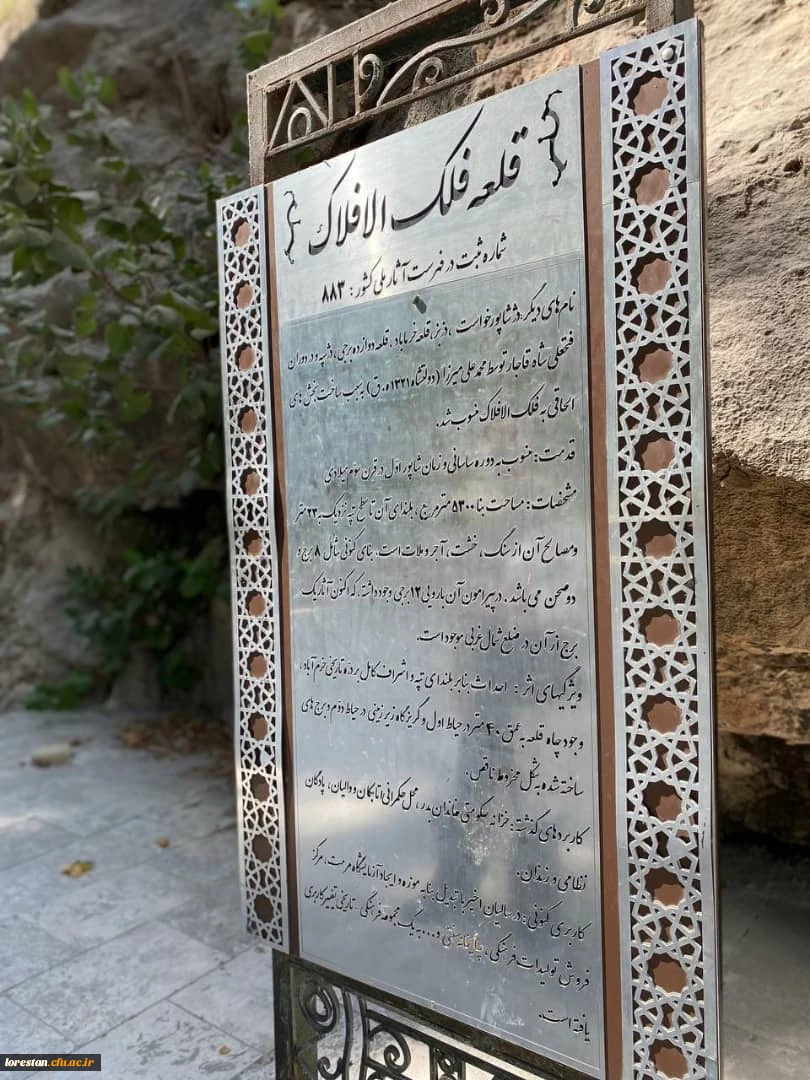 قلعه فلک الافلاک
شماره ثبت در فهرست آثار ملی کشور : ۸۸۳
نام‌های دیگر: دژ شاپورخواست ، دزبز، قلعه خرماباد، قلعه دوازده برجی، دژسپه و در دوران
فتحعلی شاه قاجار توسط محمدعلی میرزا (دولتشاه ۱۲۲۱ ه.ق) به سبب ساخت بخش های
الحاقی به فلک الافلاک منسوب شد.
قدمت: منسوب به دوره ساسانی و زمان شاپور اول در قرن سوم میلادی
مشخصات: مساحت بنا ۵۳۰۰ مترمربع ، بلندای آن تا سطح تپه نزدیک به ۲۳ متر
ومصالح آن از سنگ ، خشت ، آجر و ملات است. بنای کنونی شامل ۸ برج و
دوصحن می باشد . در پیرامون آن بارویی ۱۲ برجی وجود داشته، که اکنون آثار یک
برج از آن در ضلع شمال غربی موجود است.
ویژگیهای اثر : احداث بنا بر بلندای تپه و اشراف کامل بر دره تاریخی خرم آباد،
وجود چاه قلعه به عمق ۴۰ متر در حیاط اول و گریزگاه زیرزمینی در حیاط دوم و برج های
ساخته شده به شکل مخروط ناقص .
کاربردهای گذشته : خزانه حکومتی خاندان بدر ، محل حکمرانی اتابکان و والیان، پادگان
نظامی و زندان.
کاربری کنونی : در سالیان اخیر با تبدیل بنا به موزه و ایجاد آزمایشگاه مرمت، مرکز
فروش تولیدات فرهنگی ، چایخانه سنتی و .... به یک مجموعه فرهنگی ـ تاریخی تغییر کاربری
یافته است.
lorestan.cfu.ac.ir